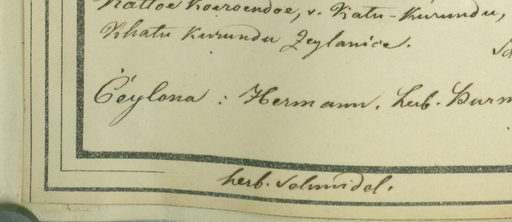 Kattoe Koeroendoe, v. Katu-Kurundu,
Khatu Kurundu Zeylanice.
Ceylona : Hermann. herb. Burm
herb. Schmidel.